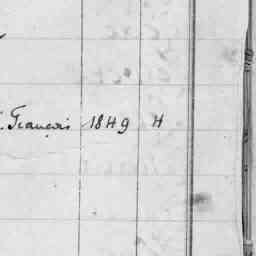 François 1849 H